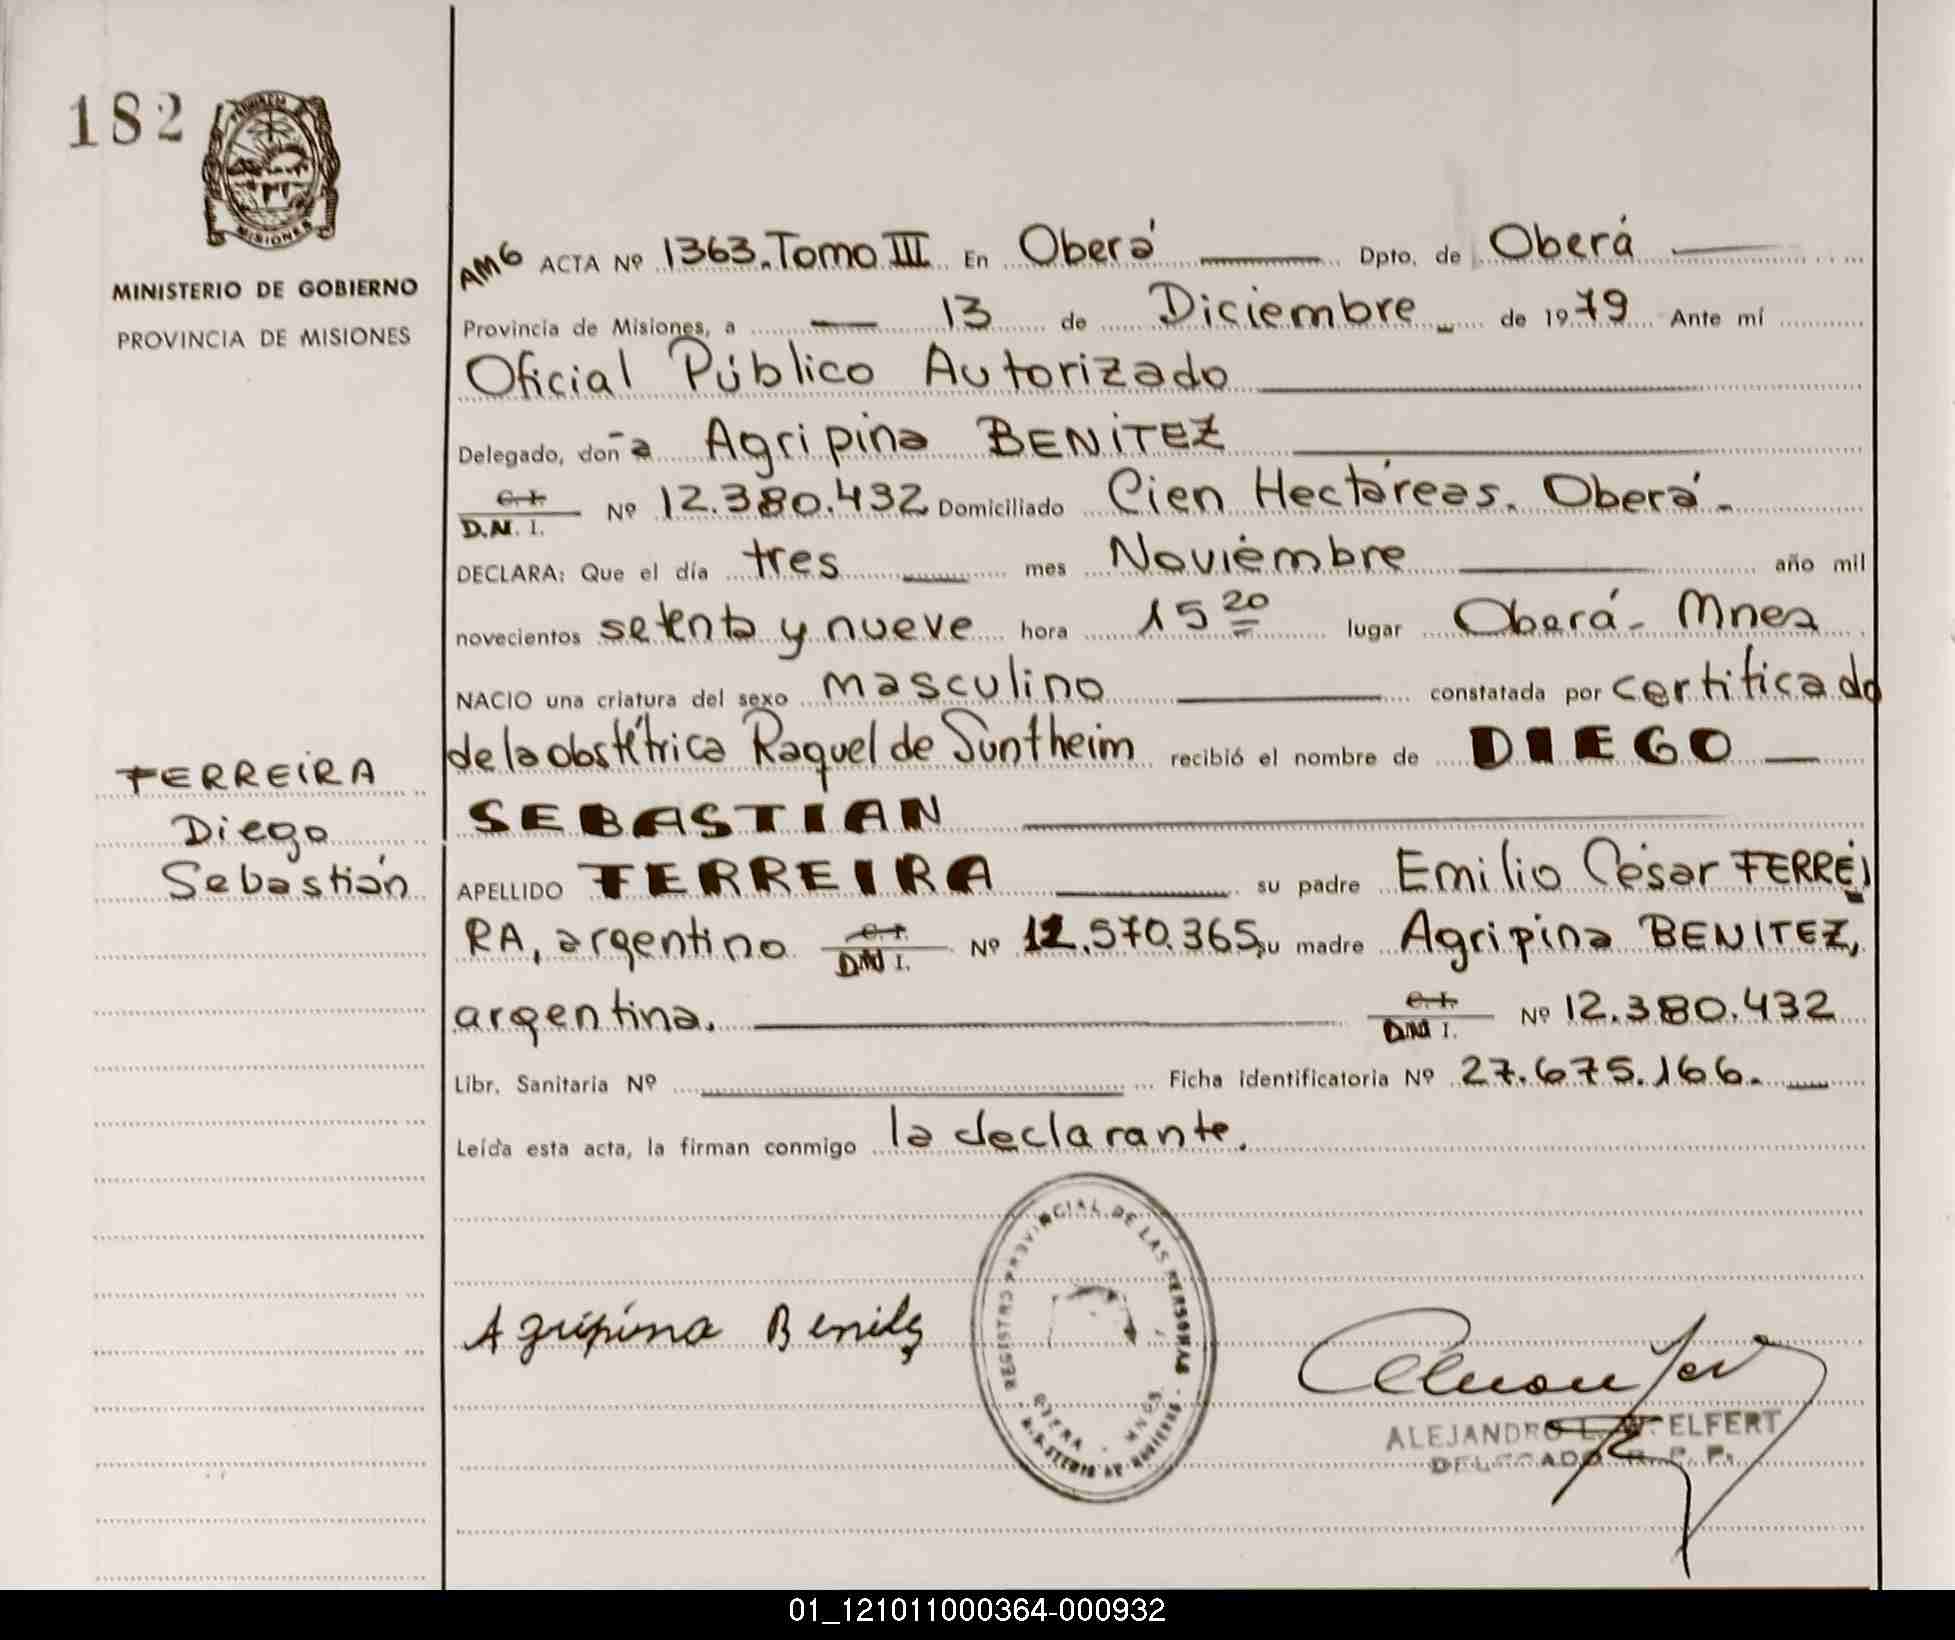 182
PROVINCIA
MISIONES
MINISTERIO DE GOBIERNO
PROVINCIA DE MISIONES
FERREIRA
Diego
Sebastián
AMG ACTA Nº 1363. Tomo III En Oberá Dpto. de Oberá
Provincia de Misiones, a 13 de Diciembre de 1979 Ante mí
Oficial Público Autorizado
Delegado, doña Agripina BENITEZ
C.I. D.N.I. Nº 12.380.432 Domiciliado Cien Hectáreas. Oberá.
DECLARA: Que el día tres mes Noviembre año mil
novecientos setenta y nueve hora 15 20 lugar Oberá - Mnes
NACIO una criatura del sexo masculino constatada por certificado
de la obstétrica Raquel de Suntheim recibió el nombre de DIEGO
SEBASTIAN
APELLIDO FERREIRA su padre Emilio César FERREI
RA, argentino C.I. D.N.I. Nº 12.570.365, su madre Agripina BENITEZ,
argentina. C.I. D.N.I. Nº 12.380.432
Libr. Sanitaria Nº Ficha identificatoria Nº 27.675.166.
Leída esta acta, la firman conmigo la declarante.
REGISTRO PROVINCIAL DE LAS PERSONAS
OBERA - MNES.
Agripina Benitez
ALEJANDRO L. W. ELFERT
DELEGADO R. P. P.
01_121011000364-000932